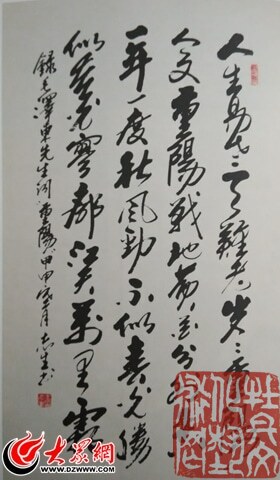 人生易老天難老歲〻重
今又重陽戰地黃花分外
一年一度秋風勁不似春光勝
似春光寥廓江天萬里霜
錄毛澤東先生詞重陽甲申
大众网
www.dzwww.com